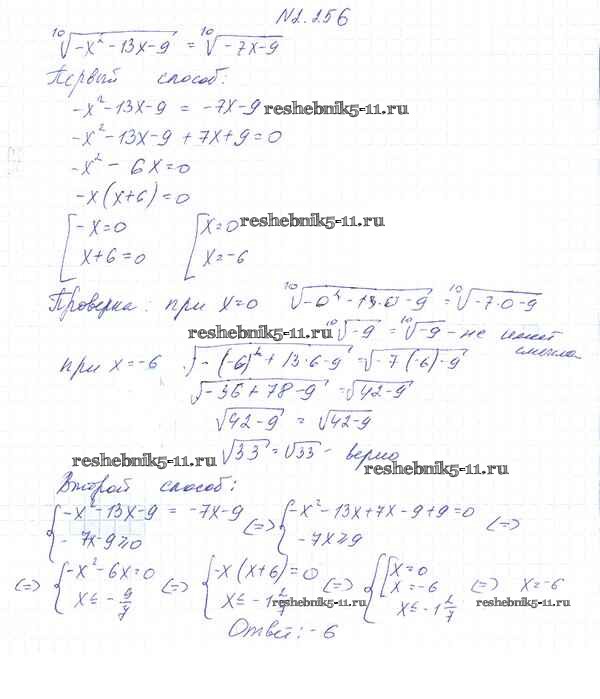 №2.256
¹⁰√(-x²-13x-9) = ¹⁰√(-7x-9)
Первый способ:
-x²-13x-9 = -7x-9 reshebnik5-11.ru
-x²-13x-9+7x+9=0
-x²-6x=0
-x(x+6)=0
[-x=0 [x=0 reshebnik5-11.ru
x+6=0 x=-6
Проверка: при x=0 ¹⁰√(-0²-13·0-9) = ¹⁰√(-7·0-9)
reshebnik5-11.ru ¹⁰√-9 = ¹⁰√-9 - не имеет
смысла
при x=-6 √(-(-6)²+13·6-9) = √(-7(-6)-9)
√(-36+78-9) = √(42-9)
√(42-9) = √(42-9)
√33 = √33 - верно
reshebnik5-11.ru reshebnik5-11.ru
Второй способ:
{-x²-13x-9 = -7x-9 (=) {-x²-13x+7x-9+9=0 (=)
-7x-9≥0 -7x≥9
(=) {-x²-6x=0 (=) {-x(x+6)=0 (=) {[x=0 x=-6 (=) x=-6
x≤-9/7 x≤-1 2/7 x≤-1 2/7
reshebnik5-11.ru reshebnik5-11.ru
Ответ: -6